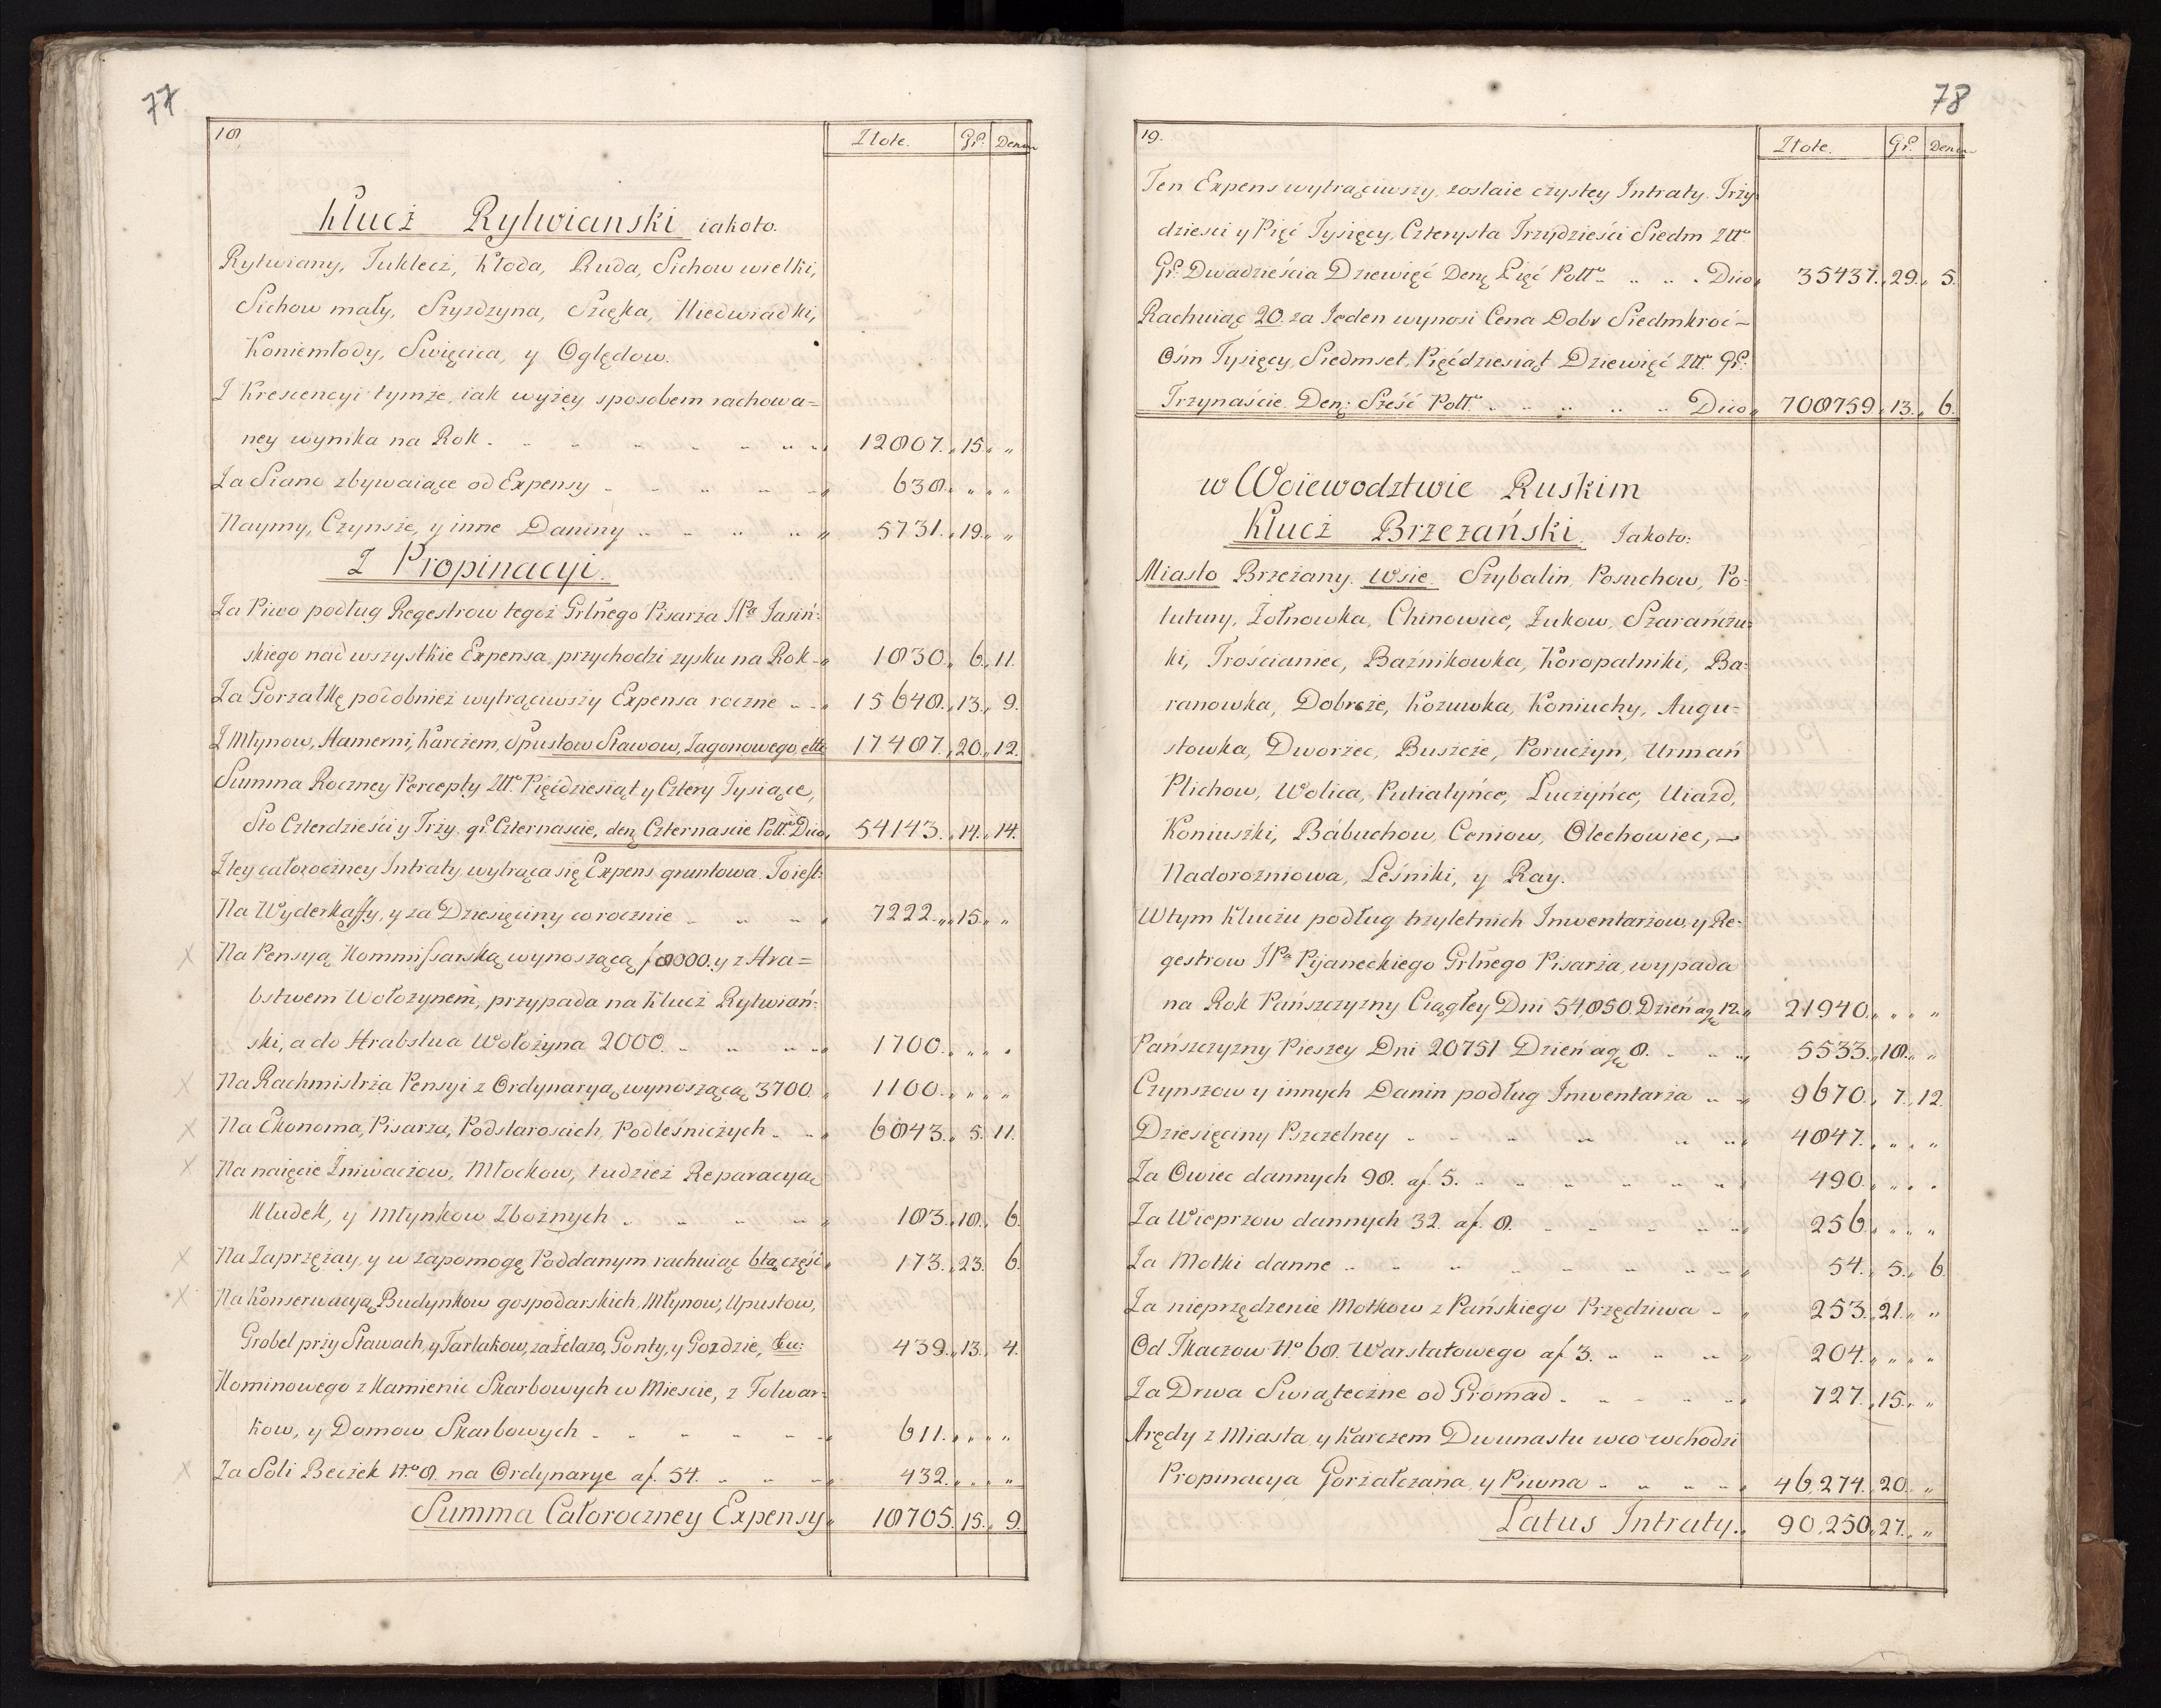 77
18. Złote. Gr. Denar
Klucż Rytwianski iakoto.
Rytwiany, Tuklecż, Kłoda, Ruda, Sichow wielki,
Sichow mały, Szyrdzyna, Szczęka, Niedwiadki,
Koniemłody, Swięcica, y Oględow.
Z Krescencyi tymże, iak wyżey sposobem rachowa=
ney wynika na Rok 12807. 15. „
Za Siano zbywaiące od Expensy 638. „ „
Naymy, Czynsże, y inne Daniny 5731. 19. „
Z Propinacyi.
Za Piwo podług Regestrow tegoż Grltnego Pisarza JPa Jasiń=
skiego nad wszystkie Expensa, przychodzi zysku na Rok 1830. 6. 11.
Za Gorzałkę podobnież wytrąciwszy Expensa roczne 15648. 13. 9.
Z Młynow, Hamerni, Karcżem, Spustow Stawow, Zagonowego, ettc 17487. 20. 12.
Summa Roczney Percepty Złłt. Pięćdziesiąt y Cztery Tysiące,
Sto Czterdzieści y Trzy, gr. Czternascie, den. Czternascie Połt. Dico 54143. 14. 14.
Z tey całoroczney Intraty wytrąca się Expens gruntowa. To iest:
Na Wyderkaffy, y za Dziesięciny corocznie 7222. 15. „
Na Pensyą Kommissarską wynoszącą f 8000. y z Hra=
bstwem Wołożynem, przypada na Klucż Rytwiań=
ski, a do Hrabstwa Wołożyna 2000. 1700. „ „
Na Rachmistrża Pensyi z Ordynaryą, wynoszącą 3700. 1100. „ „
Na Ekonoma, Pisarza, Podstaroscich, Podleśnicżych 6843. 5. 11.
Na naięcie Żniwacżow, Młockow, tudzież Reparacyą
Kłudek, y Młynkow Zbożnych 183. 18. 6.
Na Zaprzężay, y w zapomogę Poddanym rachuiąc 6tą część 173. 23. 6.
Na Konserwacyą Budynkow gospodarskich, Młynow, Upustow,
Grobel przy Stawach, y Tartakow, za Żelazo, Gonty, y Gozdzie, &c: 439. 13. 4.
Kominowego z Kamienic Skarbowych w Miescie, z Folwar=
kow, y Domow Skarbowych 611. „ „
Za Soli Becżek No 8. na Ordynarye af. 54. 432. „ „
Summa Całoroczney Expensy 18705. 15. 9.
78
19. Złote. Gr. Denar
Ten Expens wytrąciwszy, zostaie czystey Intraty. Trzy=
dziesci y Pięć Tysięcy, Czterysta Trzydzieści Siedm Złłt.
Gr. Dwadzieścia Dziewięć Den. Pięć Połt. Dico 35437. 29. 5.
Rachuiąc 20. za Jeden wynosi Cena Dobr Siedmkroć –
Ośm Tysięcy, Siedmset, Pięćdziesiąt Dziewięć Złłt. Gr.
Trzynaście. Den: Sześć Połt. Dico 708759. 13. 6.
w Wciewodztwie Ruskim
Klucż Brzeżański. Jakoto:
Miasto Brzeżany. Wsie. Szybalin, Posuchow, Po=
tutury, Żołnowka, Chinowice, Żukow, Szarańcżu=
ki, Trościaniec, Baźnikowka, Koropatniki, Ba=
ranowka, Dobrcże, Kozuwka, Koniuchy, Augu=
stowka, Dworżec, Buszcże, Porucżyn, Urmań
Plichow, Wolica, Putiatyńce, Lucżyńce, Uiazd,
Koniuszki, Babuchow, Ceniow, Olechowiec, –
Nadorożniowa, Leśniki, y Ray.
W tym Klucżu podług trzyletnich Inwentarżow, y Re=
gestrow JPa Pijaneckiego Grltnego Pisarża, wypada
na Rok Pańszczyzny Ciągłey Dni 54,850. Dzień a gr 12. 21940. „ „
Pańszczyzny Pieszey Dni 20751 Dzień a gr 8. 5533. 18. „
Czynszow y innych Danin podług Inwentarża 9670. 7. 12.
Dziesięciny Pszczelney 4847. „ „
Za Owiec dannych 98. af. 5. 490. „ „
Za Wieprzow dannych 32. af. 8. 256. „ „
Za Motki danne 54. 5. 6.
Za nieprzędzenie Motkow z Pańskiego Przędziwa 253. 21. „
Od Tkaczow No 68. Warstatowego af 3. 204. „ „
Za Drwa Swiątecżne od Gromad 727. 15. „
Arędy z Miasta y Karczem Dwunastu w co wchodzi
Propinacya Gorżałczana, y Piwna 46,274. 20. „
Latus Intraty 90,250. 27. „